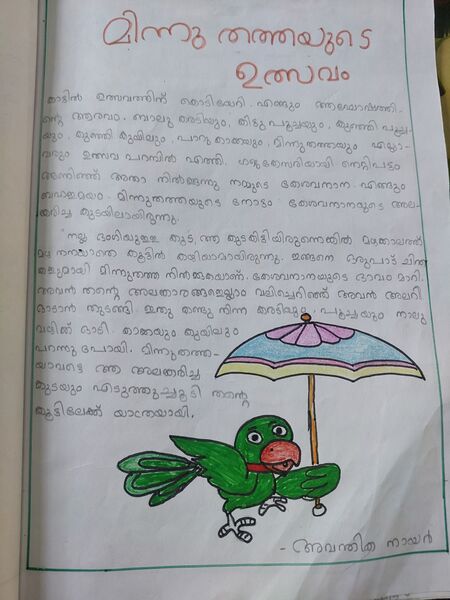 മിന്നു തത്തയുടെ
ഉത്സവം
കാട്ടിൽ ഉത്സവത്തിന് കൊടിയേറി. എങ്ങും ആഘോഷത്തി-
ന്റെ ആരവം. ബാലു കരടിയും, കിട്ടു പൂച്ചയും, കുഞ്ഞി പൂച്ച-
യും, കുഞ്ഞി കുയിലും, പാറു കാക്കയും, മിന്നു തത്തയും എല്ലാ-
വരും ഉത്സവ പറമ്പിൽ എത്തി. ഗജകേസരിയായി നെറ്റിപട്ടം
അണിഞ്ഞ് അതാ നിൽക്കുന്നു നമ്മുടെ കേശവനാന. എങ്ങും
ബഹളമയം. മിന്നുതത്തയുടെ നോട്ടം കേശവനാനയുടെ അല-
ങ്കരിച്ച കുടയിലായിരുന്നു.
നല്ല ഭംഗിയുള്ള കുട, ആ കുടകിട്ടിയിരുന്നെങ്കിൽ മഴക്കാലത്ത്
മഴ നനയാതെ കൂട്ടിൽ കഴിയാമായിരുന്നു. ഇങ്ങനെ ഒരുപാട് ചിന്ത
കളുമായി മിന്നുതത്ത നിൽക്കുകയാണ്. കേശവനാനയുടെ ഭാവം മാറി.
അവൻ തന്റെ അലങ്കാരങ്ങളെല്ലാം വലിച്ചെറിഞ്ഞ് അവൻ അലറി
ഓടാൻ തുടങ്ങി. ഇതു കണ്ടു നിന്ന കരടിയും, പൂച്ചയും നാലു
വഴിക്ക് ഓടി. കാക്കയും കുയിലും
പറന്നുപോയി. മിന്നുതത്ത-
യാവട്ടെ ആ അലങ്കരിച്ച
കുടയും എടുത്തുകൂട്ടി തന്റെ
കൂട്ടിലേക്ക് യാത്രയായി.
- അവന്തിക നായർ